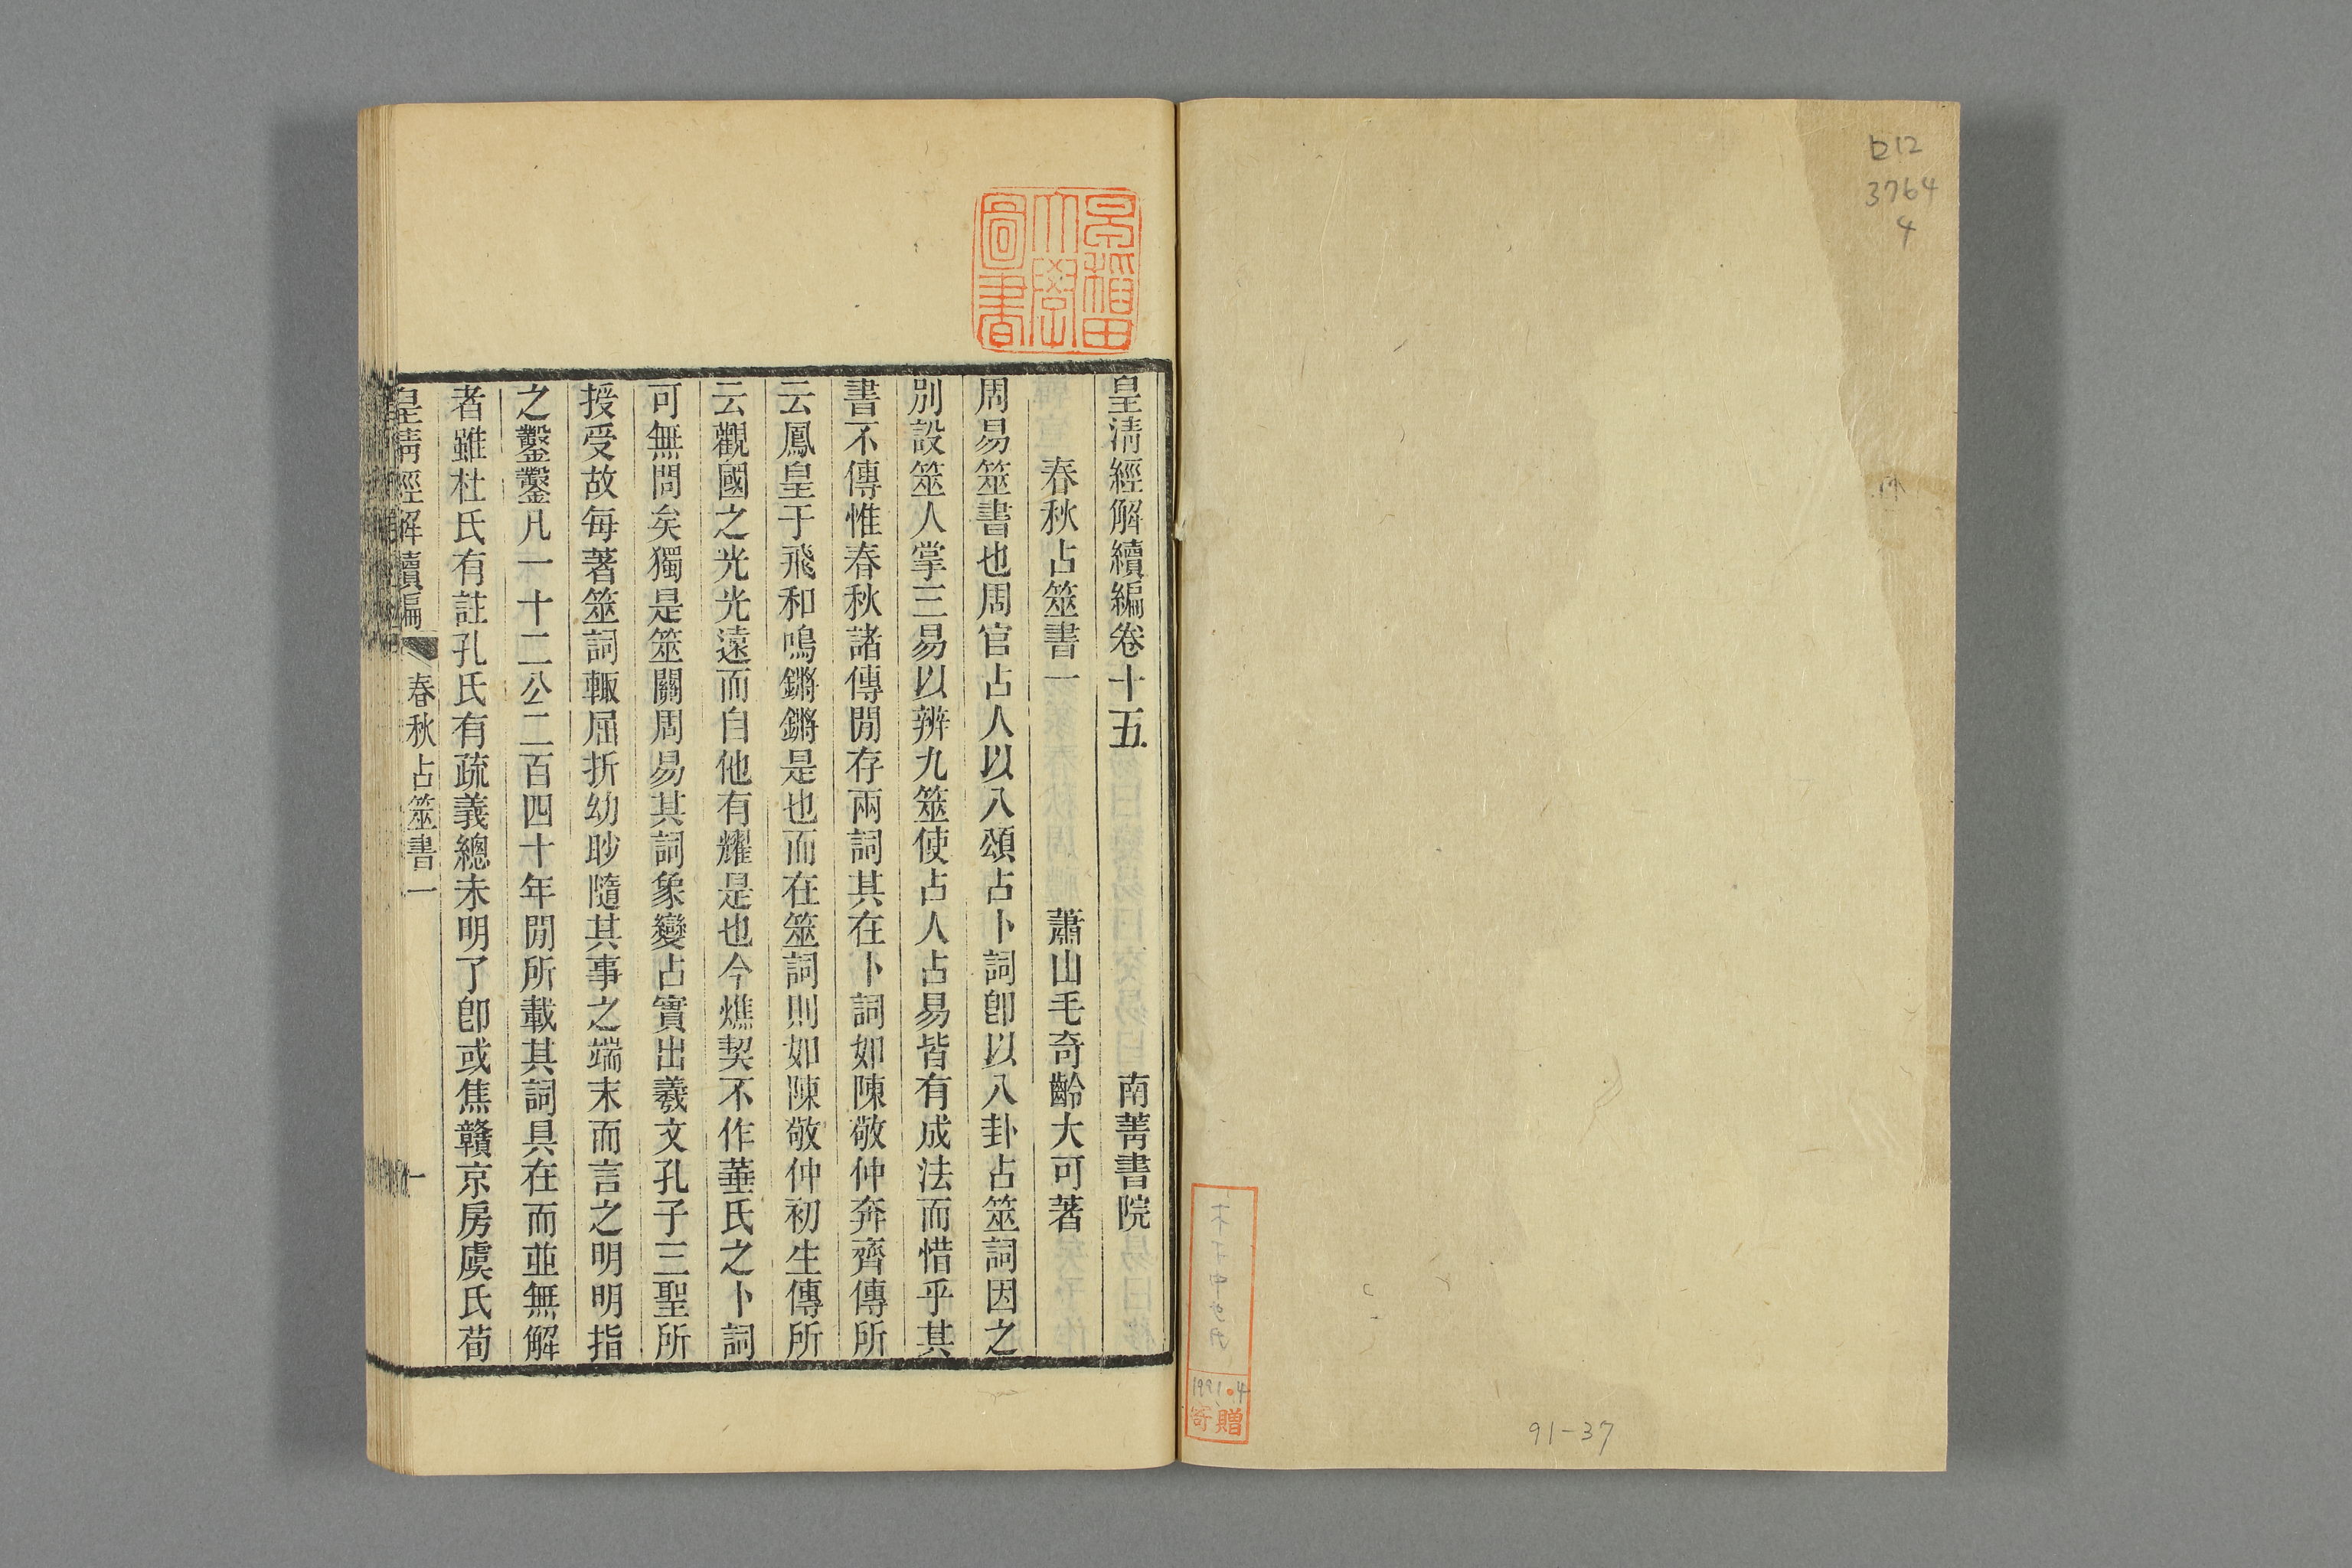 ロ12
3764
4
1991.4
寄贈
91-37
早稲田
大學
圖書
皇清經解續編卷十五
南菁書院
春秋占筮書一
蕭山毛奇齡大可著
周易筮書也周官占人以八頌占卜詞卽以八卦占筮詞因之
別設筮人掌三易以辨九筮使占人占易皆有成法而惜乎其
書不傳惟春秋諸傳閒存兩詞其在卜詞如陳敬仲奔齊傳所
云鳳皇于飛和鳴鏘鏘是也而在筮詞則如陳敬仲初生傳所
云觀國之光光遠而自他有耀是也今燋契不作菙氏之卜詞
可無問矣獨是筮關周易其詞象變占實出羲文孔子三聖所
授受故每著筮詞輒屈折幼眇隨其事之端末而言之明明指
之鑿鑿凡一十二公二百四十年閒所載其詞具在而並無解
者雖杜氏有註孔氏有疏義總未明了卽或焦贛京房虞氏荀
皇清經解續編
春秋占筮書一
一